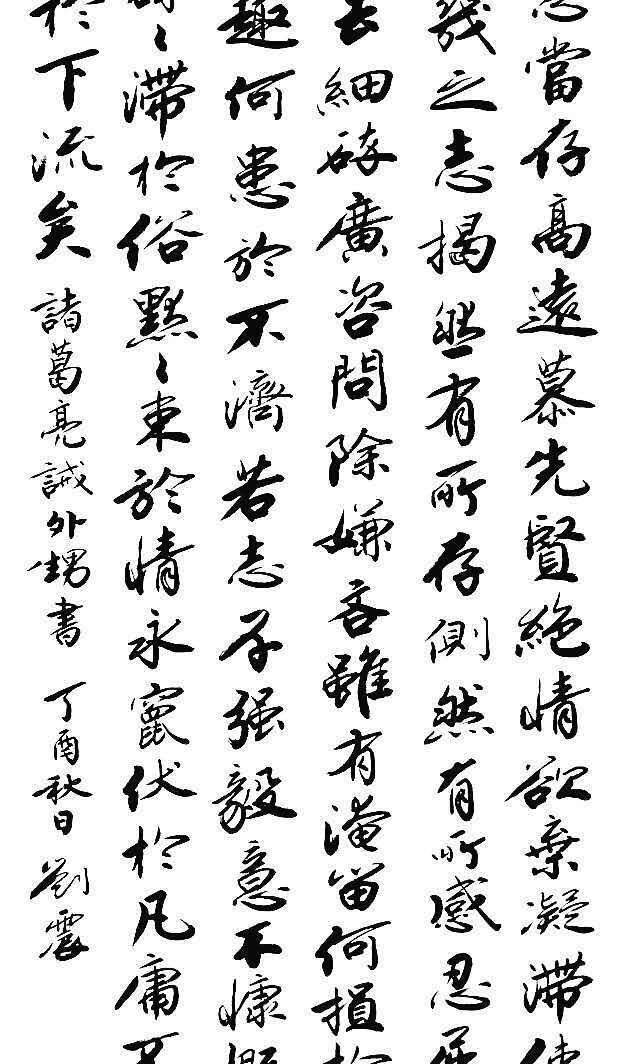 志當存高遠慕先賢絕情欲棄凝滯使
幾之志揭然有所存惻然有所感忍屈
去細碎廣咨問除嫌吝雖有淹留何損於
趣何患於不濟若志不强毅意不慷慨
碌々滯於俗默々束於情永竄伏於凡庸不
於下流矣 諸葛亮誡外甥書 丁酉秋日 劉震